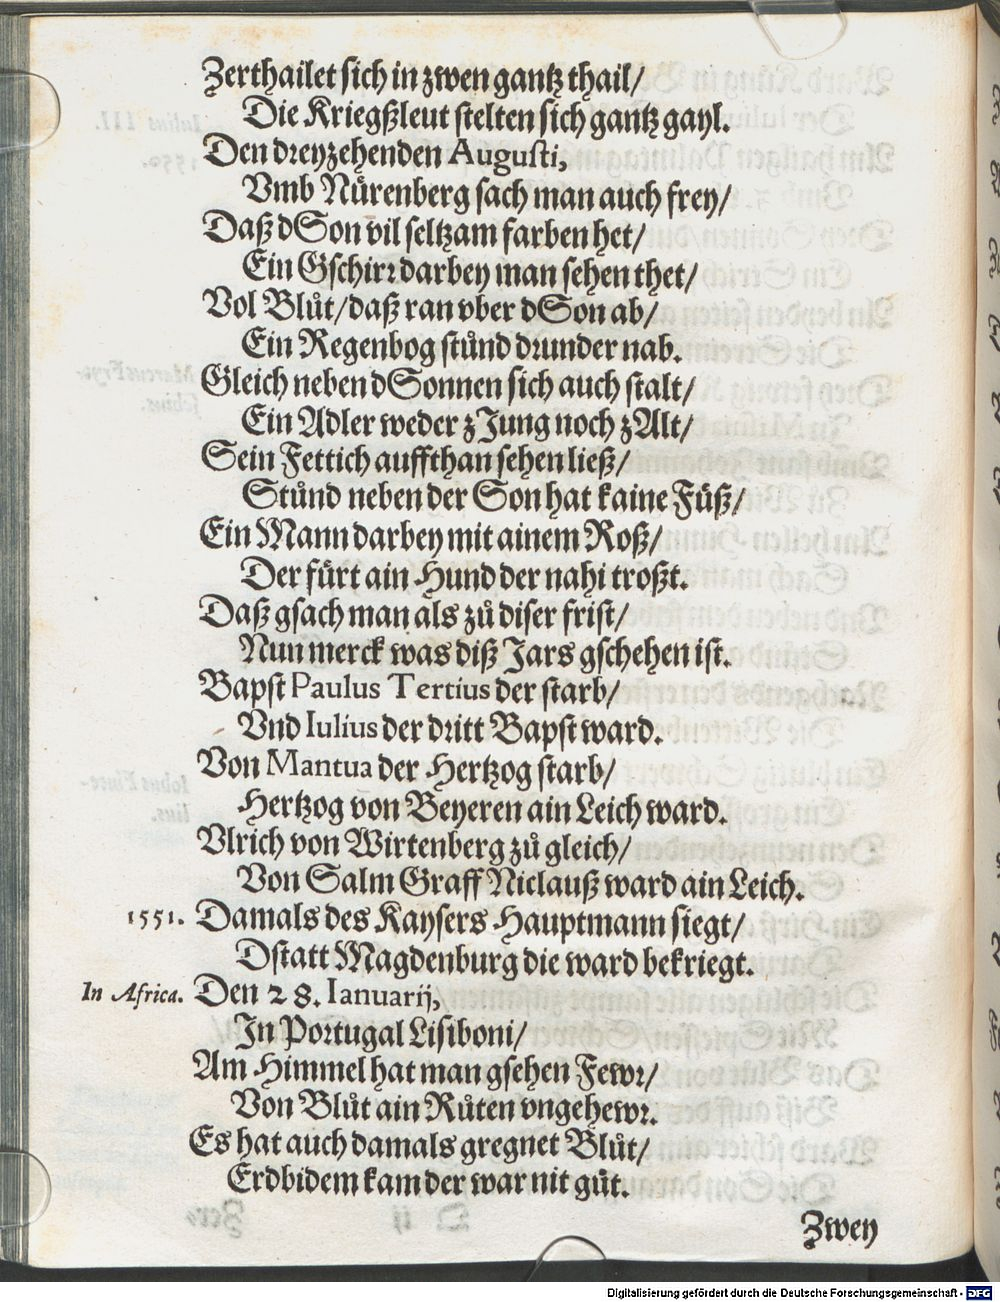 Zerthailet sich in zwen gantz thail/
Die Kriegßleut stelten sich gantz gayl.
Den dreyzehenden Augusti,
Vmb Nuͤrenberg sach man auch frey/
Daß dSon vil seltzam farben het/
Ein Gschirr darbey man sehen thet/
Vol Bluͦt/daß ran vber dSon ab/
Ein Regenbog stuͦnd drunder nab.
Gleich neben dSonnen sich auch stalt/
Ein Adler weder zJung noch zAlt/
Sein Fettich auffthan sehen ließ/
Stuͦnd neben der Son hat kaine Fuͤß/
Ein Mann darbey mit ainem Roß/
Der fuͤrt ain Hund der nahi troßt.
Daß gsach man als zuͦ diser frist/
Nun merck was diß Jars gschehen ist.
Bapst Paulus Tertius der starb/
Vnd Iulius der dritt Bapst ward.
Von Mantua der Hertzog starb/
Hertzog von Beyeren ain Leich ward.
Vlrich von Wirtenberg zuͦ gleich/
Von Salm Graff Niclauß ward ain Leich.
1551. Damals des Kaysers Hauptmann siegt/
Dstatt Magdenburg die ward bekriegt.
In Africa. Den 28. Ianuarij,
In Portugal Lisiboni/
Am Himmel hat man gsehen Fewr/
Von Bluͦt ain Ruͦten vngehewr.
Es hat auch damals gregnet Bluͦt/
Erdbidem kam der war nit guͦt.
Zwey
Digitalisierung gefördert durch die Deutsche Forschungsgemeinschaft - DFG